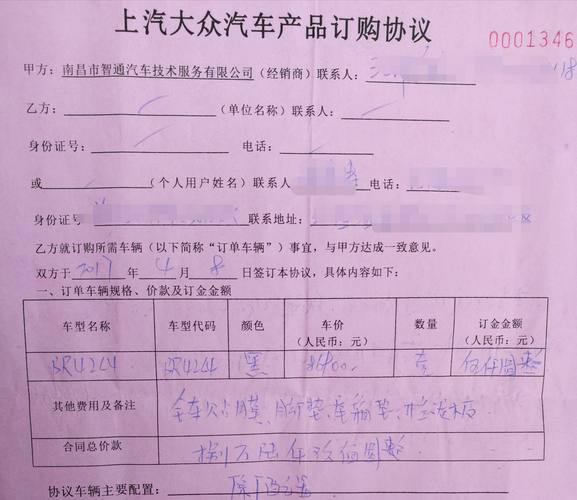 上汽大众汽车产品订购协议
0001346
甲方：南昌市智通汽车技术服务有限公司（经销商）联系人：
乙方：（单位名称）联系人：
身份证号：电话：
或（个人用户姓名）联系人 电话：
身份证号 联系地址：
乙方就订购所需车辆（以下简称“订单车辆”）事宜，与甲方达成一致意见。
双方于2017年4月8日签订本协议，具体内容如下：
一、订单车辆规格、价款及订金金额
车型名称 车型代码 颜色 车价（人民币：元） 数量 订金金额（人民币：元）
BR42L4 BR42L4 黑 86400 壹 伍仟圆整
其他费用及备注 全车贴膜、脚垫、车箱垫、挡泥板
合同总价款 捌万陆仟 佰圆整
协议车辆主要配置：